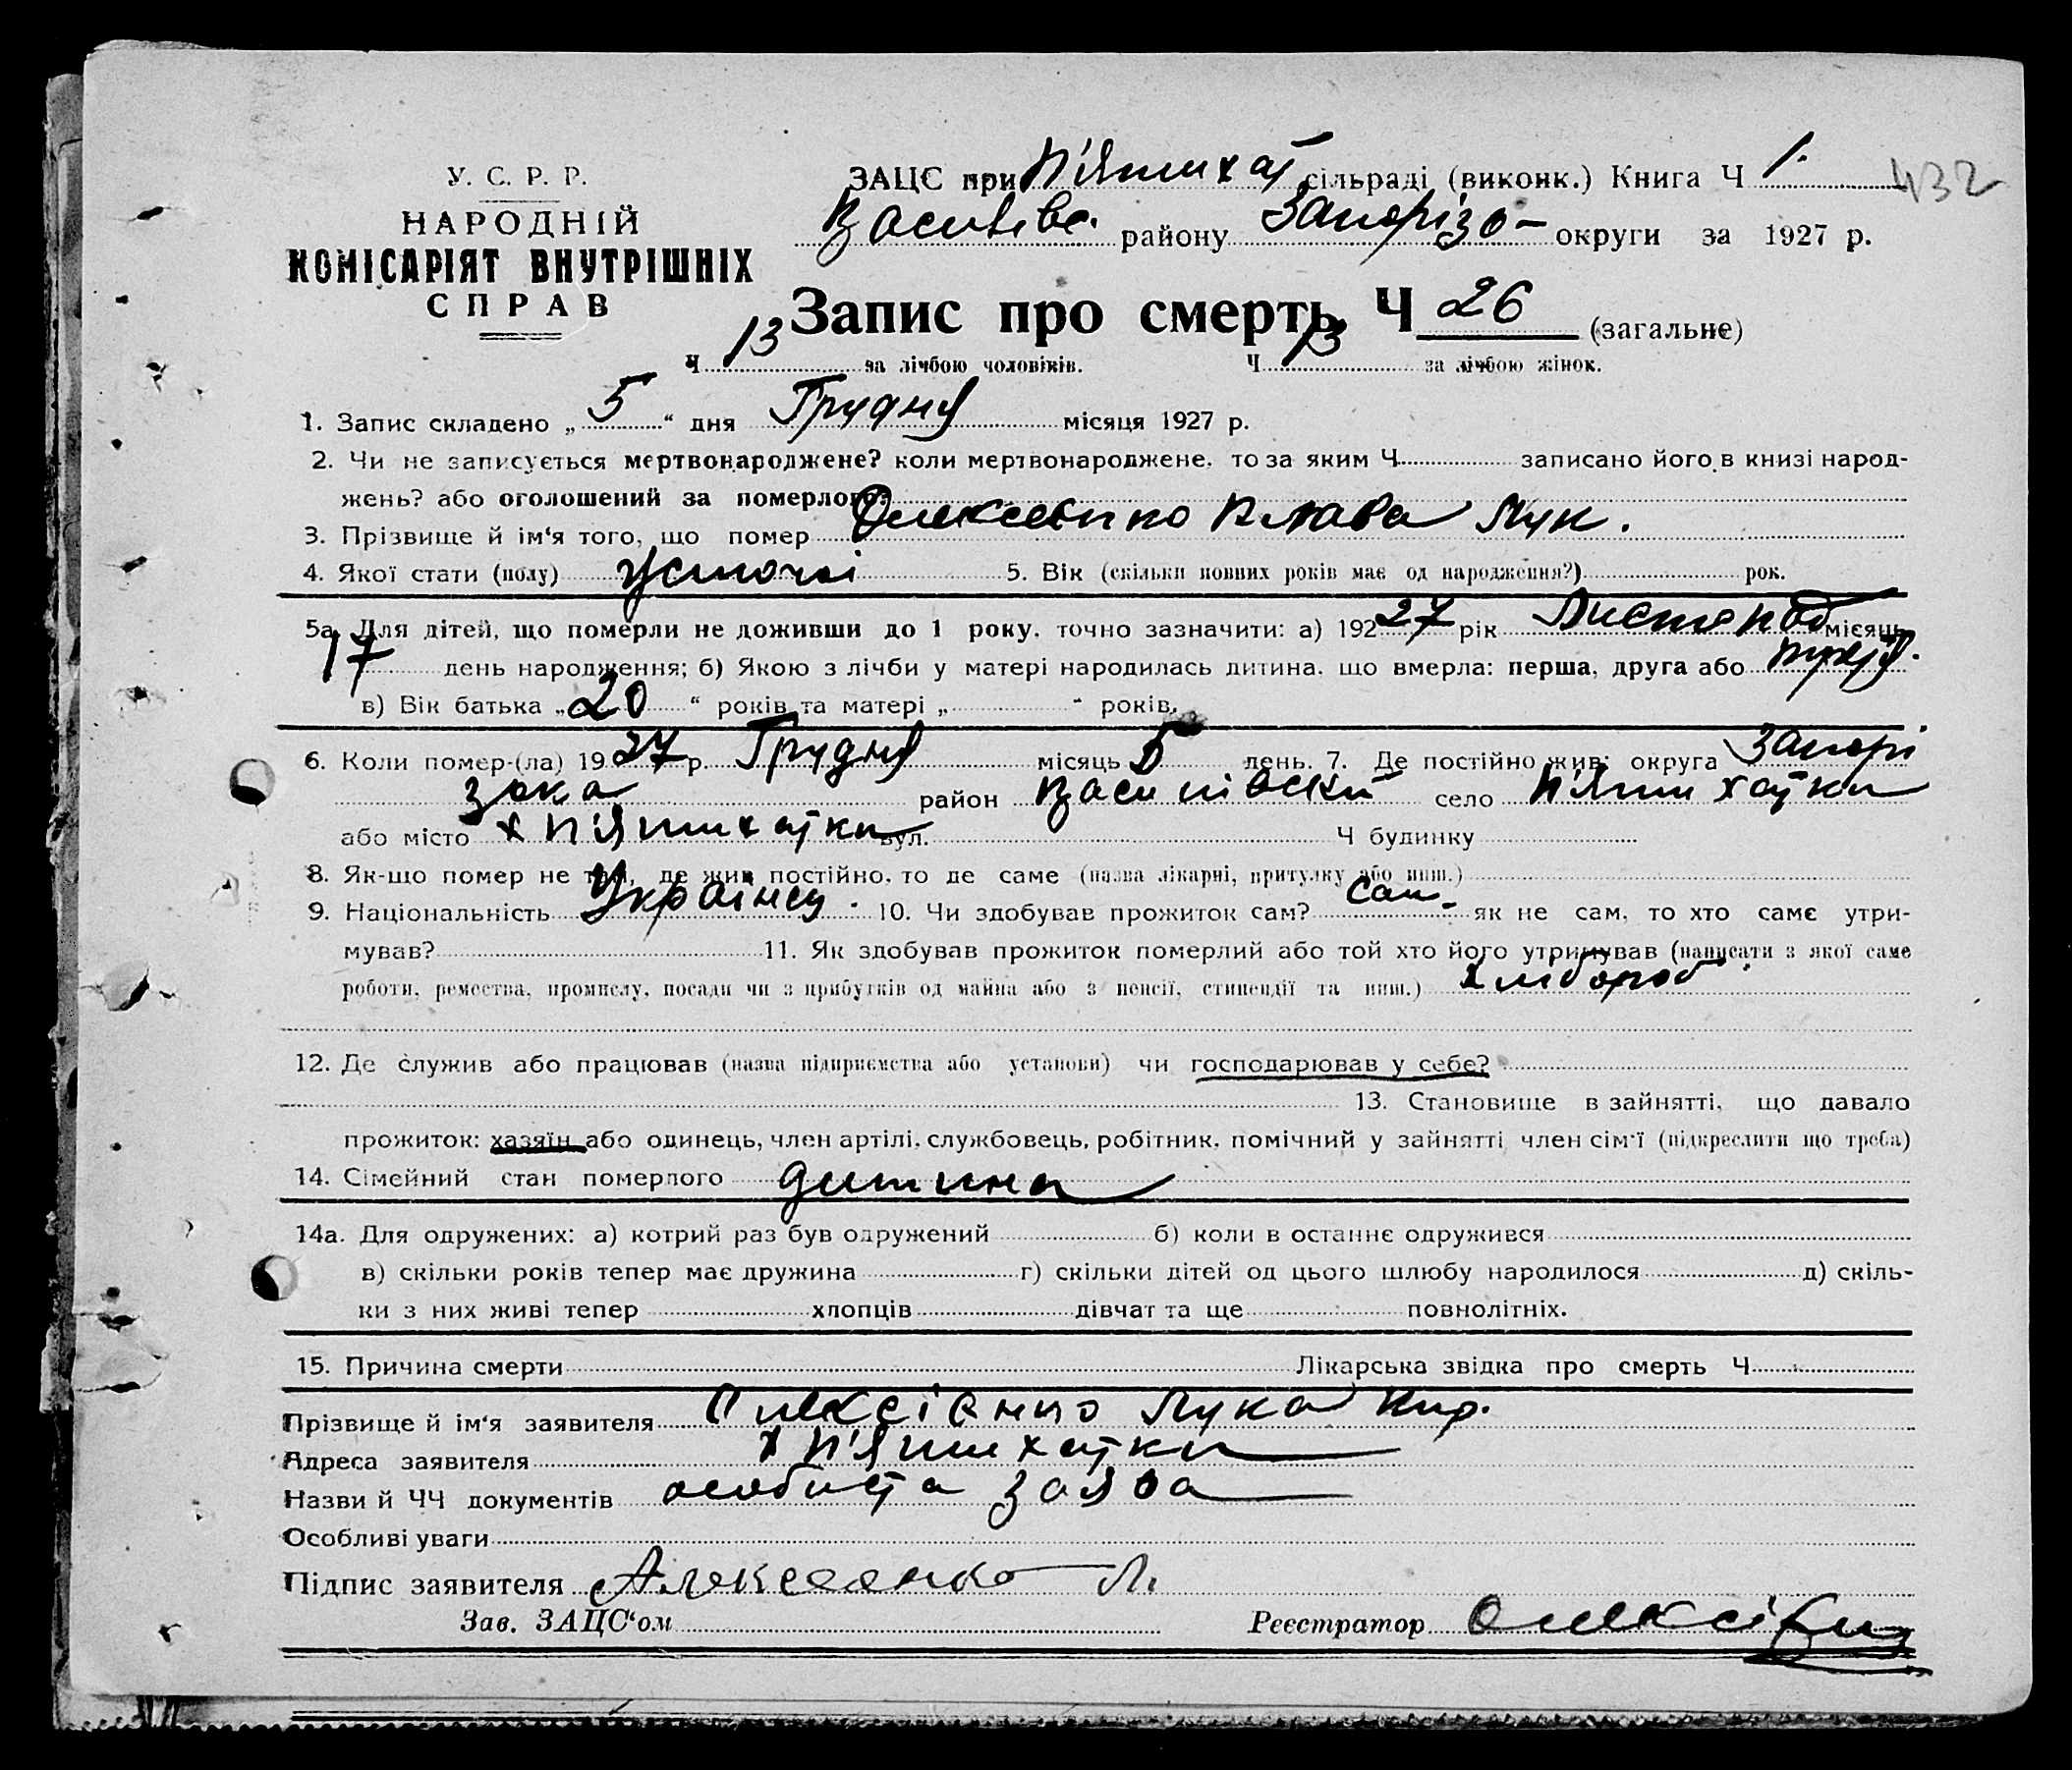 У. С. Р. Р.
НАРОДНІЙ
КОМІСАРІЯТ ВНУТРІШНІХ
СПРАВ
ЗАЦС при П'ятихат. сільраді (виконк.) Книга Ч 1. 432
Василів. району Запорізо- округи за 1927 р.
Запис про смерть, Ч 26 (загальне)
Ч 13 за лічбою чоловіків. Ч 13 за лічбою жінок.
1. Запис складено „ 5 “ дня Грудня місяця 1927 р.
2. Чи не записується мертвонароджене? коли мертвонароджене, то за яким Ч записано його в книзі народ-
жень? або оголошений за померлого?
3. Прізвище й ім'я того, що помер Олексієнко Клава Лук.
4. Якої стати (полу) жіночої 5. Вік (скільки повних років має од народження?) рок.
5а. Для дітей, що померли не доживши до 1 року, точно зазначити: а) 192 27 рік Листопад місяць
17 день народження; б) Якою з лічби у матері народилась дитина, що вмерла: перша, друга або
в) Вік батька „ 20 “ років та матері „ “ років.
6. Коли помер-(ла) 19 27 р. Грудня місяць 5 день. 7. Де постійно жив: округа Запорі
зька район Василівский село П'ятихатки
або місто х П'ятихатки вул. Ч будинку
8. Як-що помер не там, де жив постійно, то де саме (назва лікарні, притулку або инш.)
9. Національність Українец. 10. Чи здобував прожиток сам? сам. як не сам, то хто саме утри-
мував? 11. Як здобував прожиток померлий або той хто його утримував (написати з якої саме
роботи, ремества, промислу, посади чи з прибутків од майна або з пенсії, стипендії та инш.) хлібороб.
12. Де служив або працював (назва підприємства або установи) чи господарював у себе?
13. Становище в зайнятті, що давало
прожиток: хазяїн або одинець, член артілі, службовець, робітник, помічний у зайнятті член сім'ї (підкреслити що треба)
14. Сімейний стан померлого дитина
14а. Для одружених: а) котрий раз був одружений б) коли в останнє одружився
в) скільки років тепер має дружина г) скільки дітей од цього шлюбу народилося д) скіль-
ки з них живі тепер хлопців дівчат та ще повнолітніх.
15. Причина смерти Лікарська звідка про смерть Ч
Прізвище й ім'я заявителя Олексієнко Лука Кир.
Адреса заявителя х П'ятихатки
Назви й ЧЧ документів особиста заява
Особливі уваги
Підпис заявителя Алексеенко Л.
Зав. ЗАЦС'ом Реєстратор